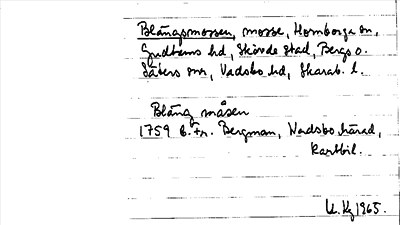 Blängsmossen, mosse, Hornborga sn,
Gudhems hd, Skövde stad, Bergs o.
Säters snr, Vadsbo hd, Skarab. l.
Bläng måsen
1759 B. Fr. Bergman, Wadsbo härad,
kartbil.
1965.